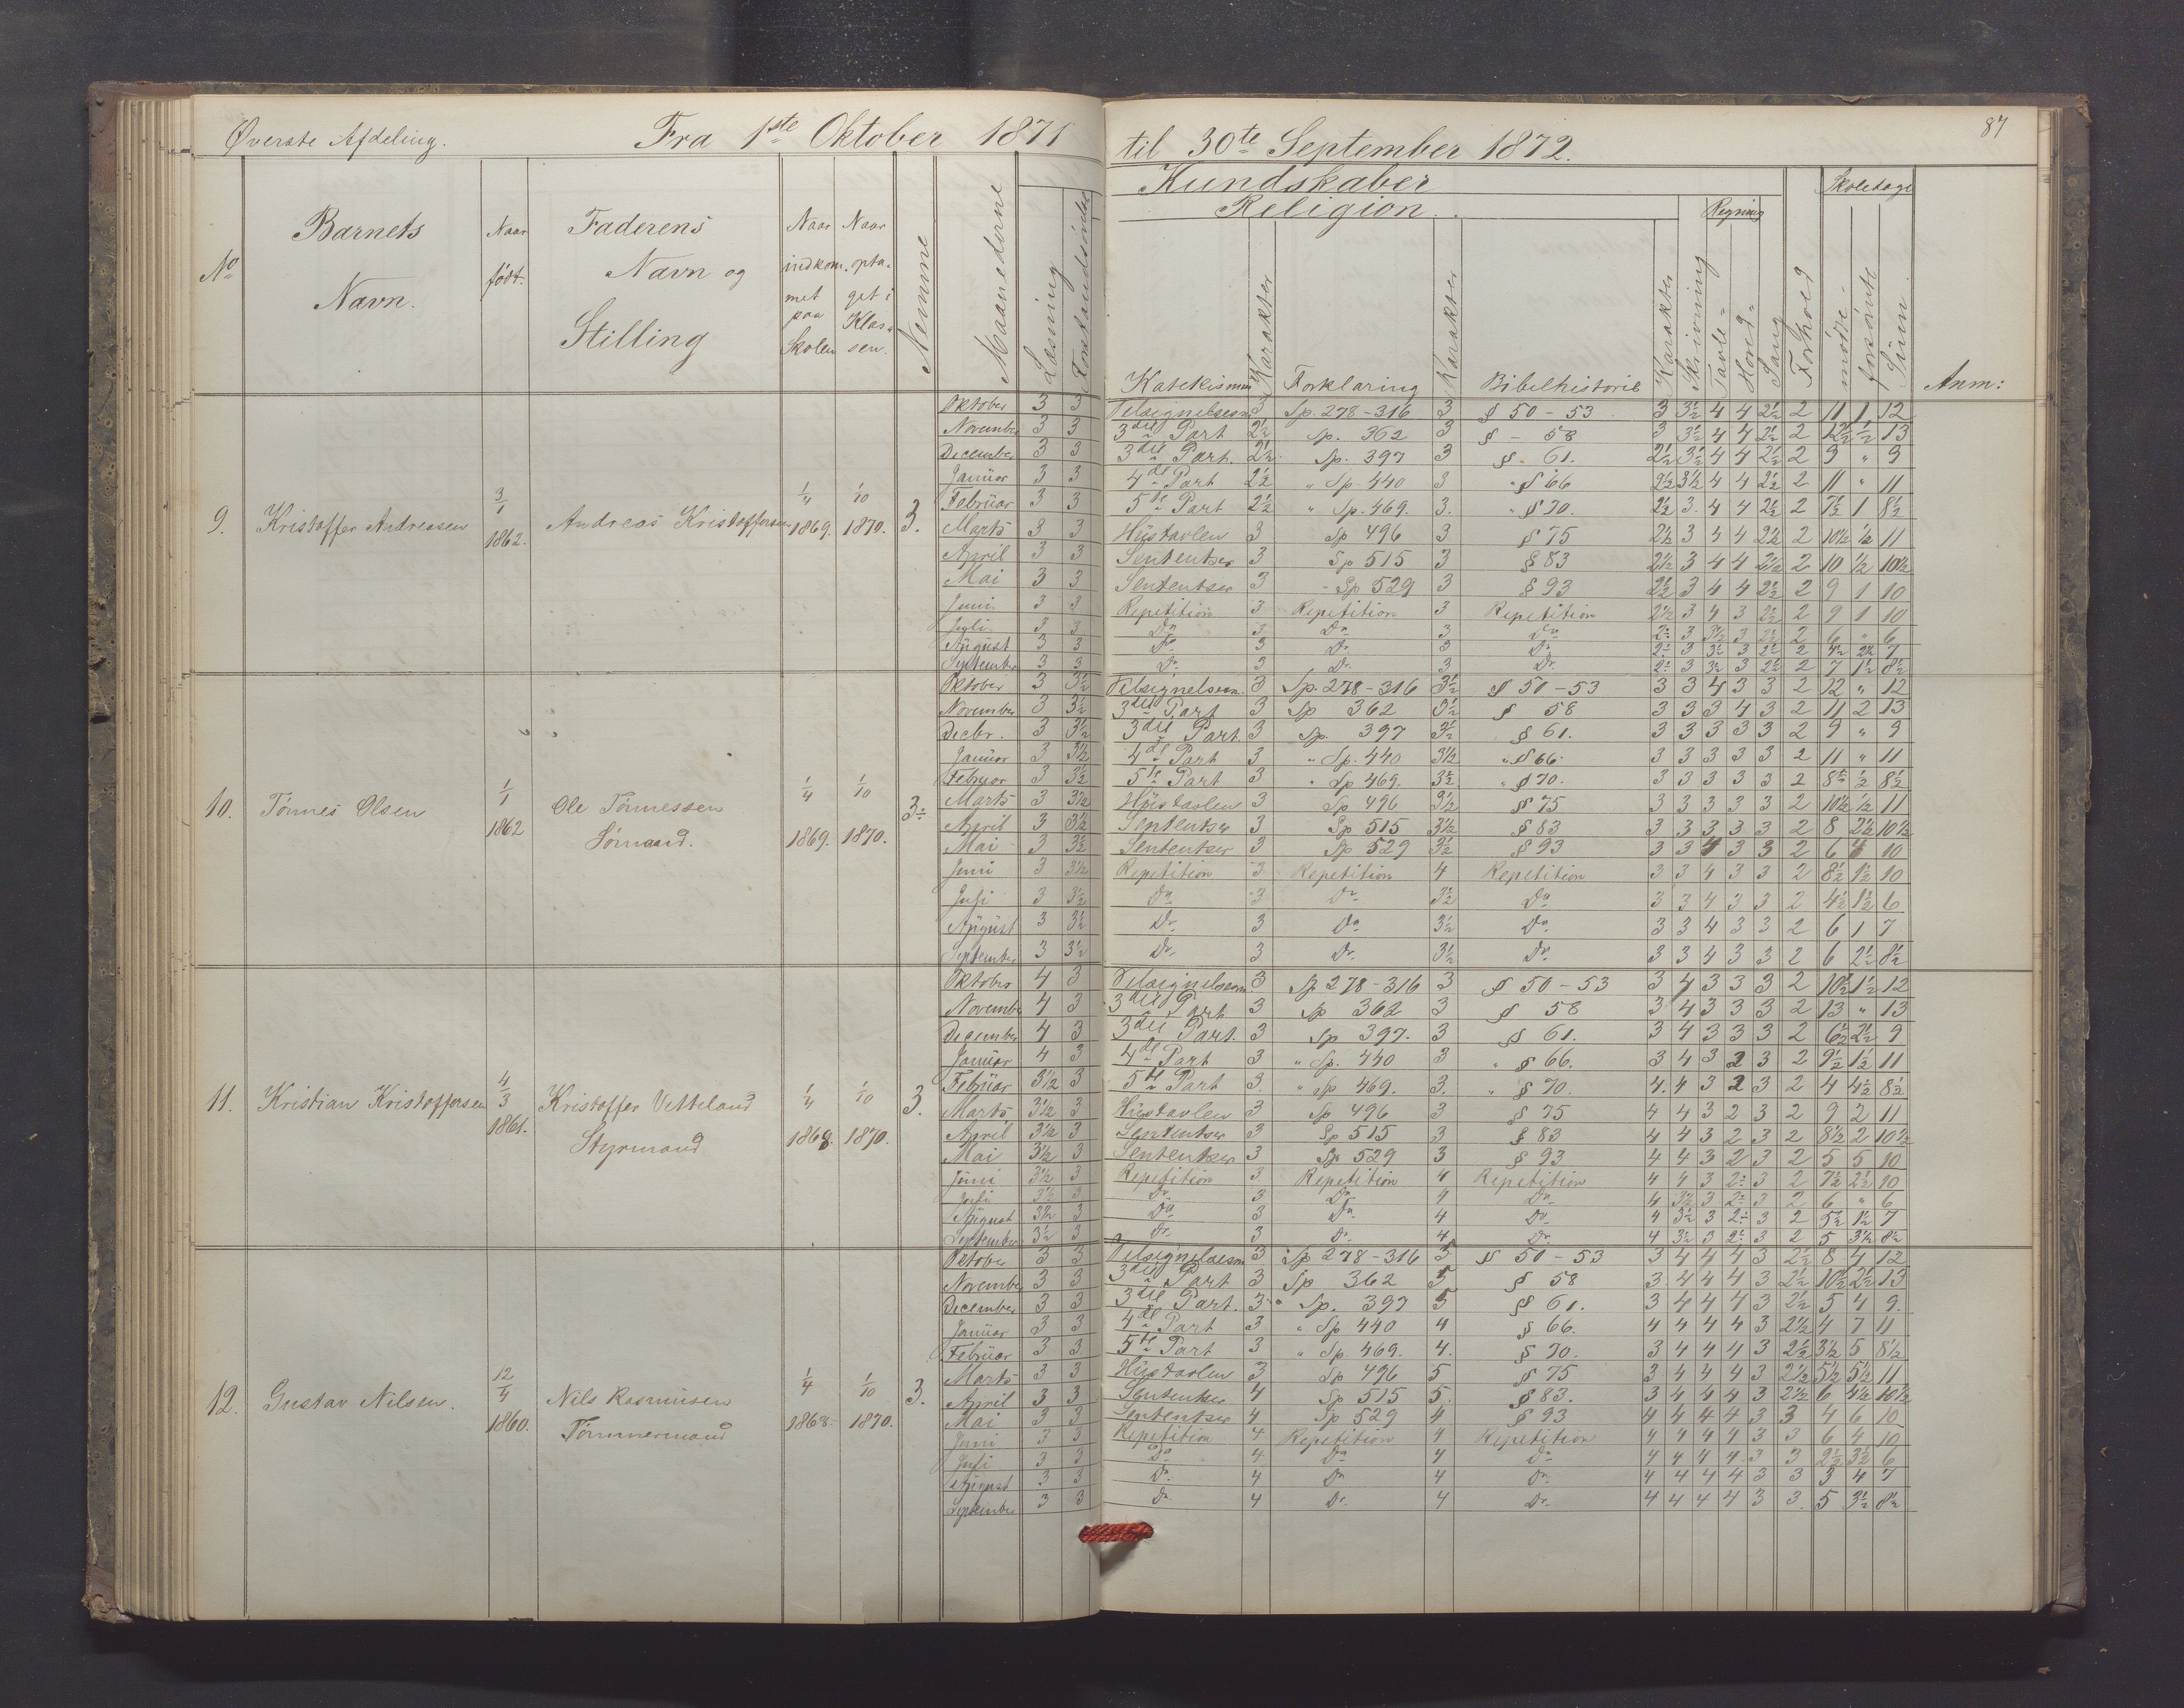 87
Øverste Afdeling. Fra 1ste Oktober 1871 til 30te September 1872.
Kundskaber
Skoledage
Religion.
Regning
No
Barnets Navn.
Naar født.
Faderens Navn og Stilling
Naar indkommet paa Skolen
Naar optaget i Klassen.
Nemme
Maanederne
Læsning
Forstandsøvelse
Katekismus
Karakter
Forklaring
Karakter
Bibelhistorie
Karakter
Skrivning
Tavle-
Hoved-
Sang
Forhold
mødte-
forsømte
Sum
Anm:
9. Kristoffer Andreasen 3/1 1862. Andreas Kristoffersen 1/4 1869. 1/10 1870. 3.
Oktober 3 3 Velsignelsesn 3 Sp. 278-316 3 § 50-53 3 3½ 4 4 2½ 2 11 1 12
November 3 3 3die Part 2½ Sp. 362 3 § - 58 3 3½ 4 4 2½ 2 12½ ½ 13
December 3 3 3die Part. 2½ Sp. 397 3 § 61. 2½ 3½ 4 4 2½ 2 9 " 9
Januar 3 3 4de Part 2½ " Sp. 440 3 " § 66 2½ 3½ 4 4 2½ 2 11 " 11
Februar 3 3 5te Part 2½ " Sp. 469. 3. " § 70. 2½ 3. 4 4 2½ 2 7½ 1 8½
Marts 3 3 Hustavlen 3 Sp 496 3 § 75 2½ 3 4 4 2½ 2 10½ ½ 11
April 3 3 Sententser 3 Sp 515 3 § 83 2½ 3 4 4 2½ 2 10 ½ 10½
Mai 3 3 Sententser 3 Sp 529 3 § 93 2½ 3 4 4 2½ 2 9 1 10
Juni 3 3 Repetition 3 Repetition 3 Repetition 2½ 3 4 3 2½ 2 9 1 10
Juli 3 3 Do 3 Do 3 Do 2÷ 3 3½ 3 2½ 2 6 " 6
August 3 3 Do 3 Do 3 Do 2÷ 3 3½ 3 2½ 2 4½ 2½ 7
September 3 3 Do 3 Do 3 Do 2÷ 3 3½ 3 2½ 2 7 1½ 8½
10. Tönnes Olsen 1/1 1862 Ole Tönnessen Sömand. 1/4 1869. 1/10 1870. 3÷
Oktober 3 3½ Velsignelsesn. 3 Sp. 278-316 3½ § 50-53 3 3 4 3 3 2 12 " 12
November 3 3½ 3die Part 3 Sp 362 3½ § 58 3 3 3 4 3 2 11 2 13
Decbr. 3 3½ 3die Part. 3 Sp. 397 3½ § 61. 3 3 3 3 3 2 9 " 9
Januar 3 3½ 4de Part 3 " Sp. 440 3½ " § 66. 3 3 3 3 3 2 11 " 11
Februar 3 3½ 5te Part 3 " Sp 469. 3½ " § 70. 3 3 3 3 3 2 8½ ½ 8½
Marts 3 3½ Hustavlen 3 Sp 496 3½ § 75 3 3 3 3 3 2 10½ ½ 11
April 3 3½ Sententser 3 Sp 515 3½ § 83 3 3 3 3 3 2 8 2½ 10½
Mai 3 3½ Sententser 3 Sp 529 3½ § 93 3 3 4 3 3 2 6 4 10
Juni 3 3½ Repetition 3 Repetition 4 Repetition 3 3 4 3 3 2 8½ 1½ 10
Juli 3 3½ Do 3 Do 3½ Do 3 3 4 3 3 2 4½ 1½ 6
August 3 3½ Do 3 Do 3½ Do 3 3 4 3 3 2 6 1 7
September 3 3½ Do 3 Do 3½ Do 3 3 4 3 3 2 6 2½ 8½
11. Kristian Kristoffersen 4/3 1861. Kristoffer Vetteland Styrmand 1/4 1868. 1/10 1870. 3.
Oktober 4 3 Velsignelsesn. 3 Sp 278-316 3 § 50-53 3 4 3 3 3 2 10½ 1½ 12
November 4 3 3die Part 3 Sp 362 3 § 58 3 4 3 3 3 2 13 " 13
December 4 3 3die Part. 3 Sp 397. 3 § 61. 3 4 3 3 3 2 6½ 2½ 9
Januar 4 3 4de Part 3 " Sp. 440 3 " § 66. 3 4 3 2 3 2 9½ 1½ 11
Februar 3½ 3 5te Part 3. " Sp 469. 3. " § 70. 4. 4 3 2 3 2 4 4½ 8½
Marts 3½ 3 Hustavlen 3 Sp 496 3 § 75 4 4 3 2 3 2 9 2 11
April 3½ 3 Sententser 3 Sp 515 3 § 83 4 4 3 2 3 2 8½ 2 10½
Mai 3½ 3 Sententser 3 Sp. 529 3 § 93 4 4 3 2 3 2 5 5 10
Juni 3½ 3 Repetition 3 Repetition 4 Repetition 4 4 3 2÷ 3 2 7½ 2½ 10
Juli 3½ 3 Do 3 Do 4 Do 4 3½ 3 2÷ 3 2 6 " 6
August 3½ 3 Do 3 Do 4 Do 4 3½ 3 2÷ 3 2 5½ 1½ 7
September 3½ 3 Do 3 Do 4 Do 4 3½ 3 2÷ 3 2 5 3½ 8½
12. Gustav Nilsen. 12/4 1860. Nils Rasmusen Tömmermand 1/4 1868. 1/10 1870. 3.
Oktober 3 3 Velsignelsesn 3 Sp 278-316 5 § 50-53 3 4 4 4 3 2½ 8 4 12
November 3 3 3die Part 3 Sp 362 5 § 58 3 4 4 4 3 2½ 10½ 2½ 13
December 3 3 3die Part. 3 " Sp. 397 5 § 61. 3 4 4 4 3 2½ 5 4 9.
Januar 3 3 4de Part 3 " Sp 440 4 § 66. 4 4 4 4 3 2½ 4 7 11
Februar 3 3 5te Part 3 " Sp. 469. 4. § 70. 3 4 4 4 3 2½ 3½ 5 8½
Marts 3 3 Hustavlen 3 Sp 496 5 § 75 3 4 4 4 3 2½ 5½ 5½ 11
April 3 3 Sententser 4 Sp 515 5. § 83. 3 4 4 4 3 2½ 6 4½ 10½
Mai 3 3 Sententser 4 Sp 529 4 § 93 4 4 4 4 3 3 4 6 10
Juni 3 3 Repetition 4 Repetition 4 Repetition 4 4 4 4 3 3 6 4 10
Juli 3 3 Do 4 Do 4 Do 4 4 4 4 3 3 2½ 3½ 6
August 3 3 Do 4 Do 4 Do 4 4 4 4 3 3 3 4 7
September 3 3 Do 4 Do 4 Do 4 4 4 4 3 3. 5 3½ 8½